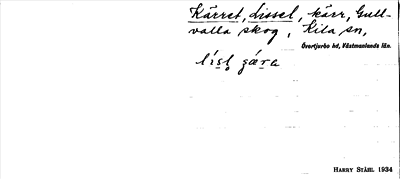 Kärret, Lissel, kärr, Gull-
valla skog, Kila sn,
Övertjurbo hd, Västmanlands län.
HARRY STÅHL 1934